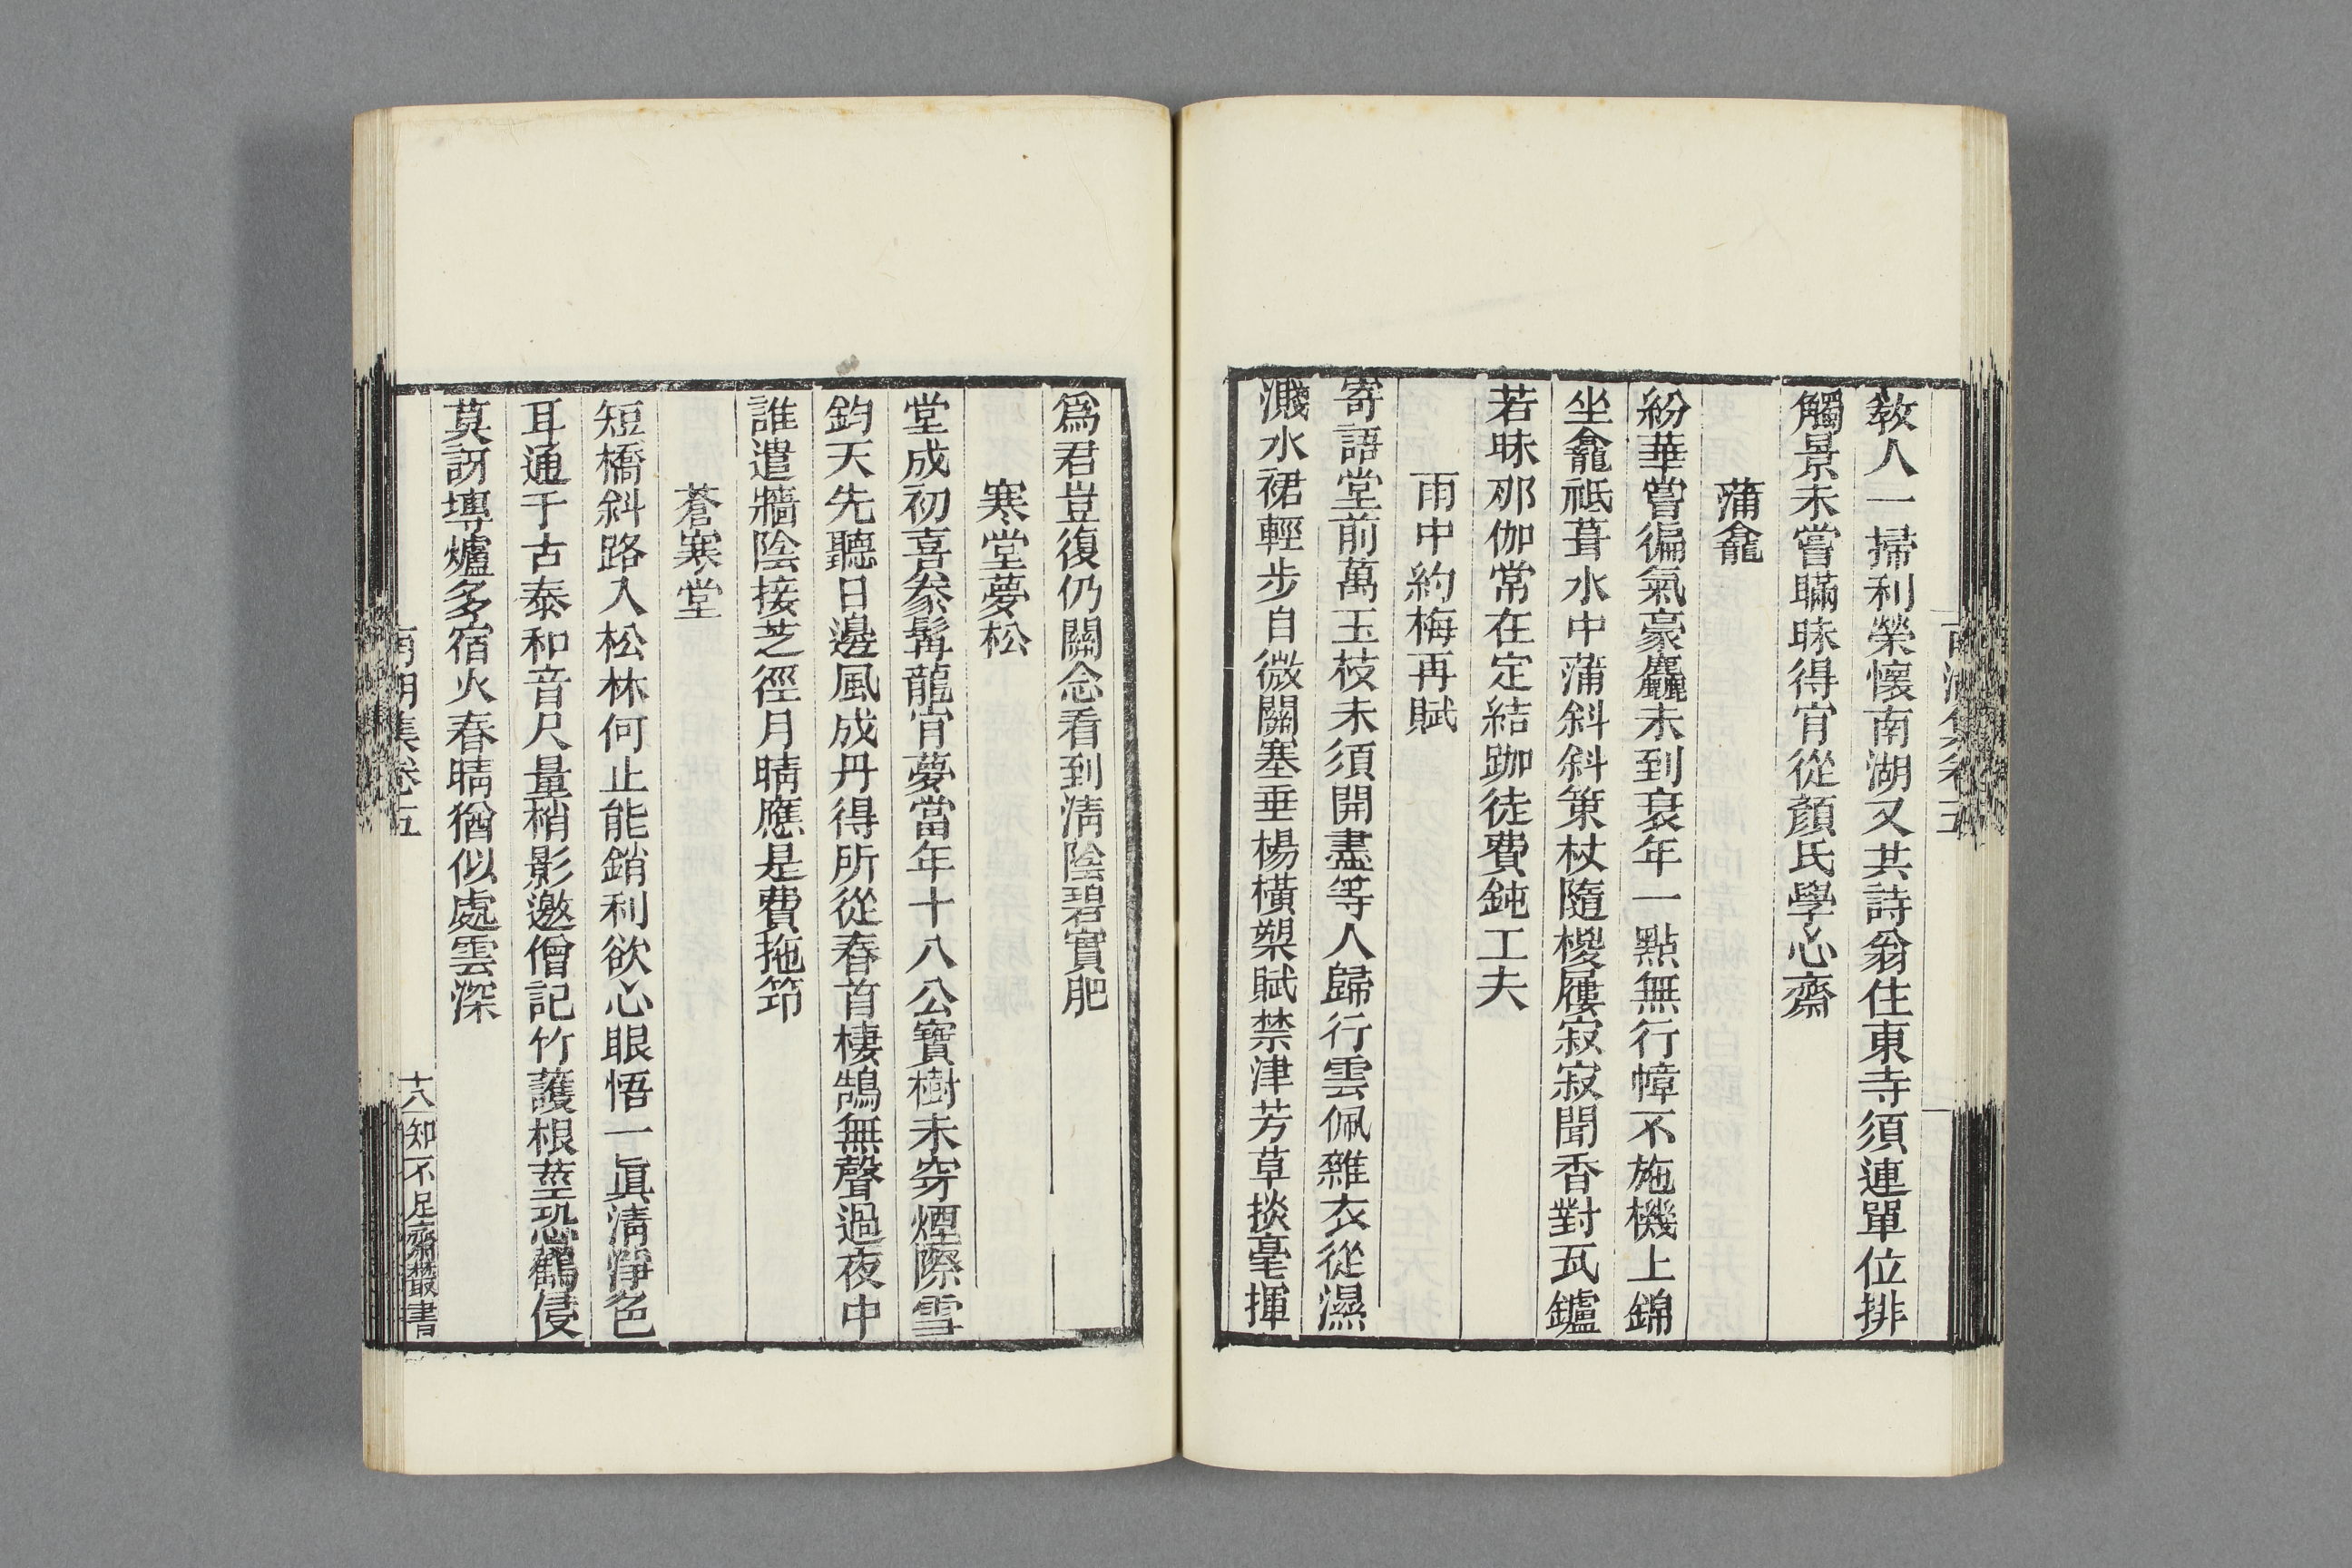 敎人一掃利榮懷南湖又共詩翁住東寺須連單位排
觸景未嘗瞞昧得肎從顏氏學心齋
蒲龕
紛華嘗徧氣豪麤未到衰年一點無行幛不施機上錦
坐龕祗葺水中蒲斜斜策杖隨椶屨寂寂聞香對瓦鑪
若昧那伽常在定結跏徒費鈍工夫
雨中約梅再賦
寄語堂前萬玉枝未須開盡等人歸行雲佩雜衣從濕
濺水裙輕步自微關塞垂楊橫槊賦禁津芳草掞毫揮
爲君豈復仍關念看到淸陰碧實肥
寒堂夢松
堂成初喜豢髯龍肎夢當年十八公寶樹未穿煙際雪
鈞天先聽日邊風成丹得所從春首棲鵠無聲過夜中
誰遣牆陰接芝徑月晴應是費拖笻
蒼寒堂
短橋斜路入松林何止能銷利欲心眼悟一眞淸淨色
耳通千古泰和音尺量梢影邀僧記竹護根莖恐鶴侵
莫訝塼爐多宿火春晴猶似處雲深
南湖集卷五
十八
知不足齋叢書